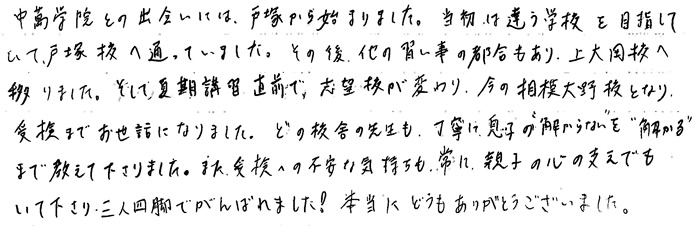 中萬学院との出会いには、戸塚から始まりました。当初は違う学校を目指して
いて、戸塚校へ通っていました。その後、他の習い事の都合もあり、上大岡校へ
移りました。そして、夏期講習直前で、志望校が変わり、今の相模大野校となり、
受検までお世話になりました。どの校舎の先生も、丁寧に、息子の"解からない"を"解かる"
まで教えて下さりました。また、受検への不安な気持ちも、常に、親子の心の支えでも
いて下さり、三人四脚でがんばれました!本当にどうもありがとうございました。